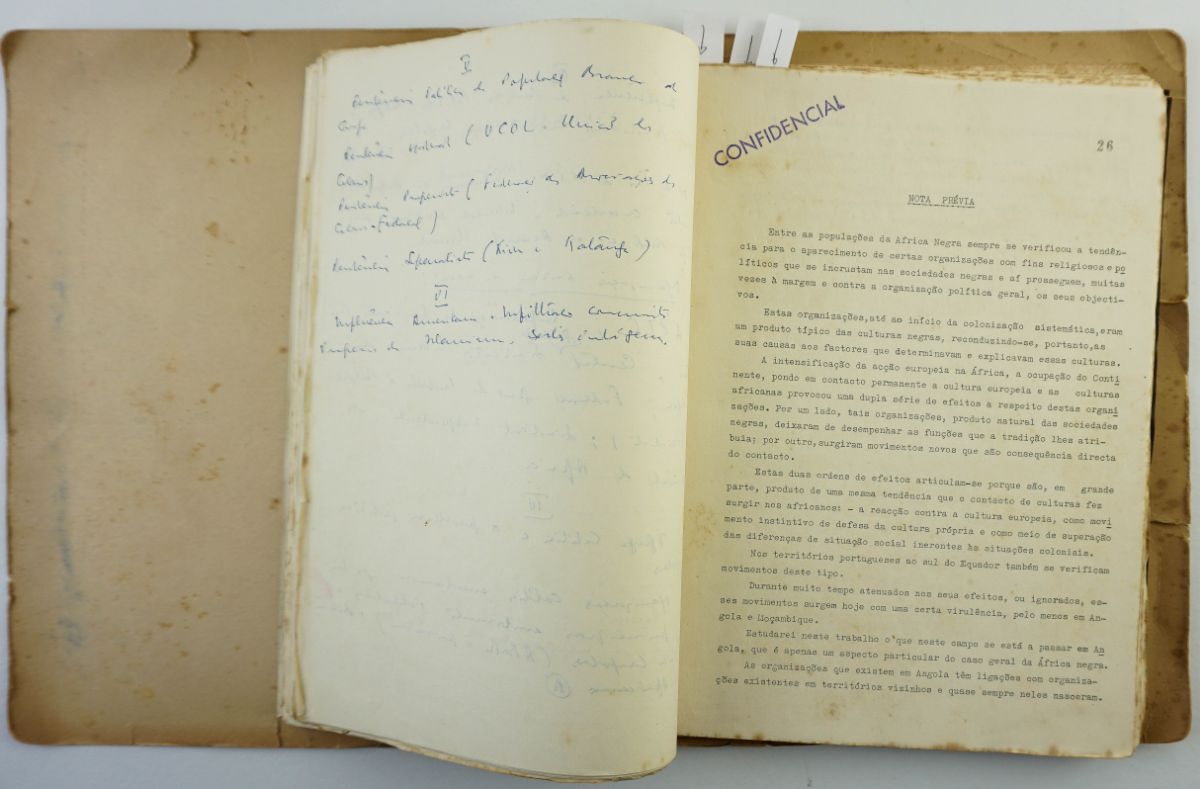 V
Tendência Política de Populações Brancas do
Congo
Tendência (UCOL - União dos
Colonos)
Tendência (Federação das Associações de
Colonos - Federacol)
Tendência Separatista (Kivu e Katanga)
VI
Influência Americana - Infiltração comunista
CONFIDENCIAL
26
NOTA PRÉVIA
Entre as populações da Africa Negra sempre se verificou a tendên-
cia para o aparecimento de certas organizações com fins religiosos e po
líticos que se incrustam nas sociedades negras e aí prosseguem, muitas
vezes à margem e contra a organização política geral, os seus objecti-
vos.
Estas organizações,até ao início da colonização sistemática,eram
um produto típico das culturas negras, reconduzindo-se, portanto,as
suas causas aos factores que determinavam e explicavam essas culturas.
A intensificação da acção europeia na África, a ocupação do Conti
nente, pondo em contacto permanente a cultura europeia e as culturas
africanas provocou uma dupla série de efeitos a respeito destas organi
zações. Por um lado, tais organizações, produto natural das sociedades
negras, deixaram de desempenhar as funções que a tradição lhes atri-
buia; por outro,surgiram movimentos novos que são consequência directa
do contacto.
Estas duas ordens de efeitos articulam-se porque são, em grande
parte, produto de uma mesma tendência que o contacto de culturas fez
surgir nos africanos: - a reacção contra a cultura europeia, como movi
mento instintivo de defesa da cultura própria e como meio de superação
das diferenças de situação social inerentes às situações coloniais.
Nos territórios portugueses ao sul do Equador também se verificam
movimentos deste tipo.
Durante muito tempo atenuados nos seus efeitos, ou ignorados, es-
ses movimentos surgem hoje com uma certa virulência, pelo menos em An-
gola e Moçambique.
Estudarei neste trabalho o que neste campo se está a passar em An
gola, que é apenas um aspecto particular do caso geral da África negra.
As organizações que existem em Angola têm ligações com organiza-
ções existentes em territórios vizinhos e quase sempre neles nasceram.